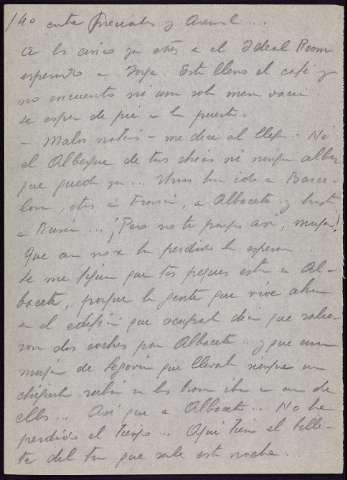 140 entre Preciados y Arenal...
A las cinco ya estoy en el Ideal Room
esperando a Jorge. Está lleno el café y
no encuentro ni una sola mesa vacía
Le espero de pié en la puerta.
- Malas noticias - me dice al llegar. No
el Albergue de tus chicos ni ningún alber
gue queda ya... Unos han ido a Barce-
lona, otros a Francia, a Albacete y hasta
a Rusia... ¡Pero no te pongas así, mujer!
Que aun no se ha perdido la esperanza
Se me figura que tus peques están en Al-
bacete, porque la gente que vive ahora
en el edificio que ocupaban dicen que salie-
ron dos coches para Albacete y que una
mujer de Segovia que llevaba
chiquita rubia en los brazos iba en uno de
ellos... Así que a Albacete... No he
perdido el tiempo... Aquí tienes el bille-
te del tren que sale esta noche.